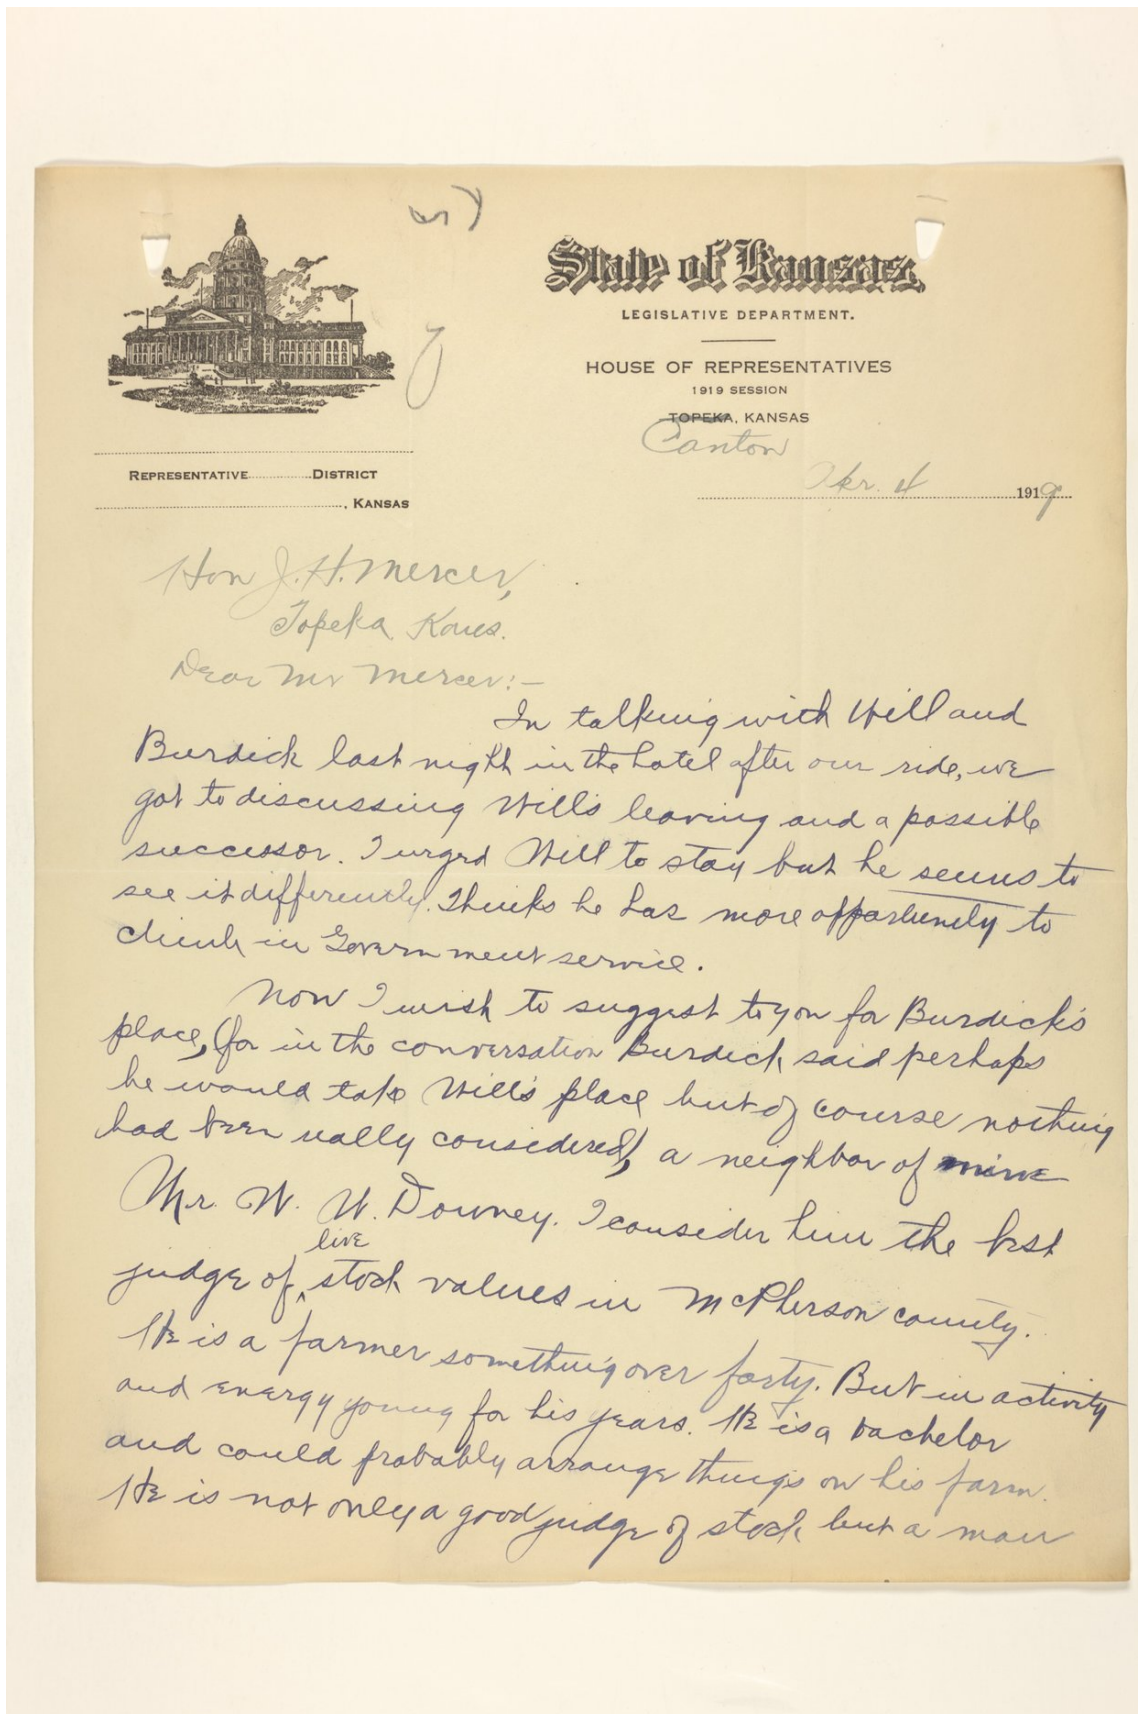 State of Kansas,
LEGISLATIVE DEPARTMENT.
HOUSE OF REPRESENTATIVES
1919 SESSION
TOPEKA, KANSAS
Canton
REPRESENTATIVE..............DISTRICT
Apr. 4 1919
, KANSAS
Hon J. H. Mercer,
Topeka Kans.
Dear Mr Mercer:-
In talking with Will and
Burdick last night in the hotel after our ride, we
got to discussing Will's leaving and a possible
successor. I urged Will to stay but he seems to
see it differently. Thinks he has more opportunity to
climb in Government service.
Now I wish to suggest to you for Burdick's
place, (for in the conversation Burdick said perhaps
he would take Will's place but of course nothing
had been really considered), a neighbor of mine
Mr. W. W. Downey. I consider him the best
live
judge of ^ stock values in McPherson county.
He is a farmer something over forty. But in activity
and energy young for his years. He is a bachelor
and could probably arrange things on his farm.
He is not only a good judge of stock but a man